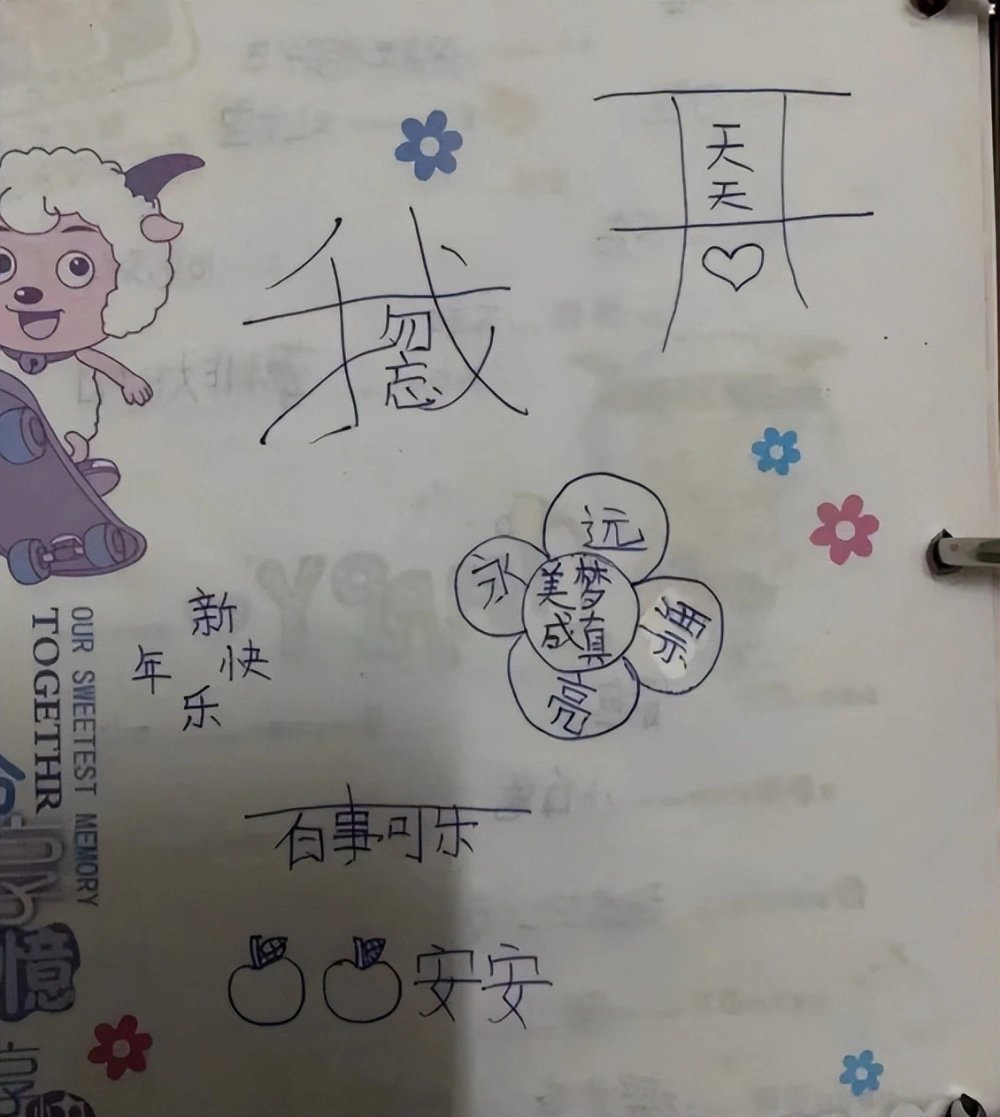 开
天
天
我
勿
忘
远
永
美梦
成真
票
亮
新
年 快
乐
百事可乐
安安
OUR SWEETEST MEMORY
TOGETHIR
忆